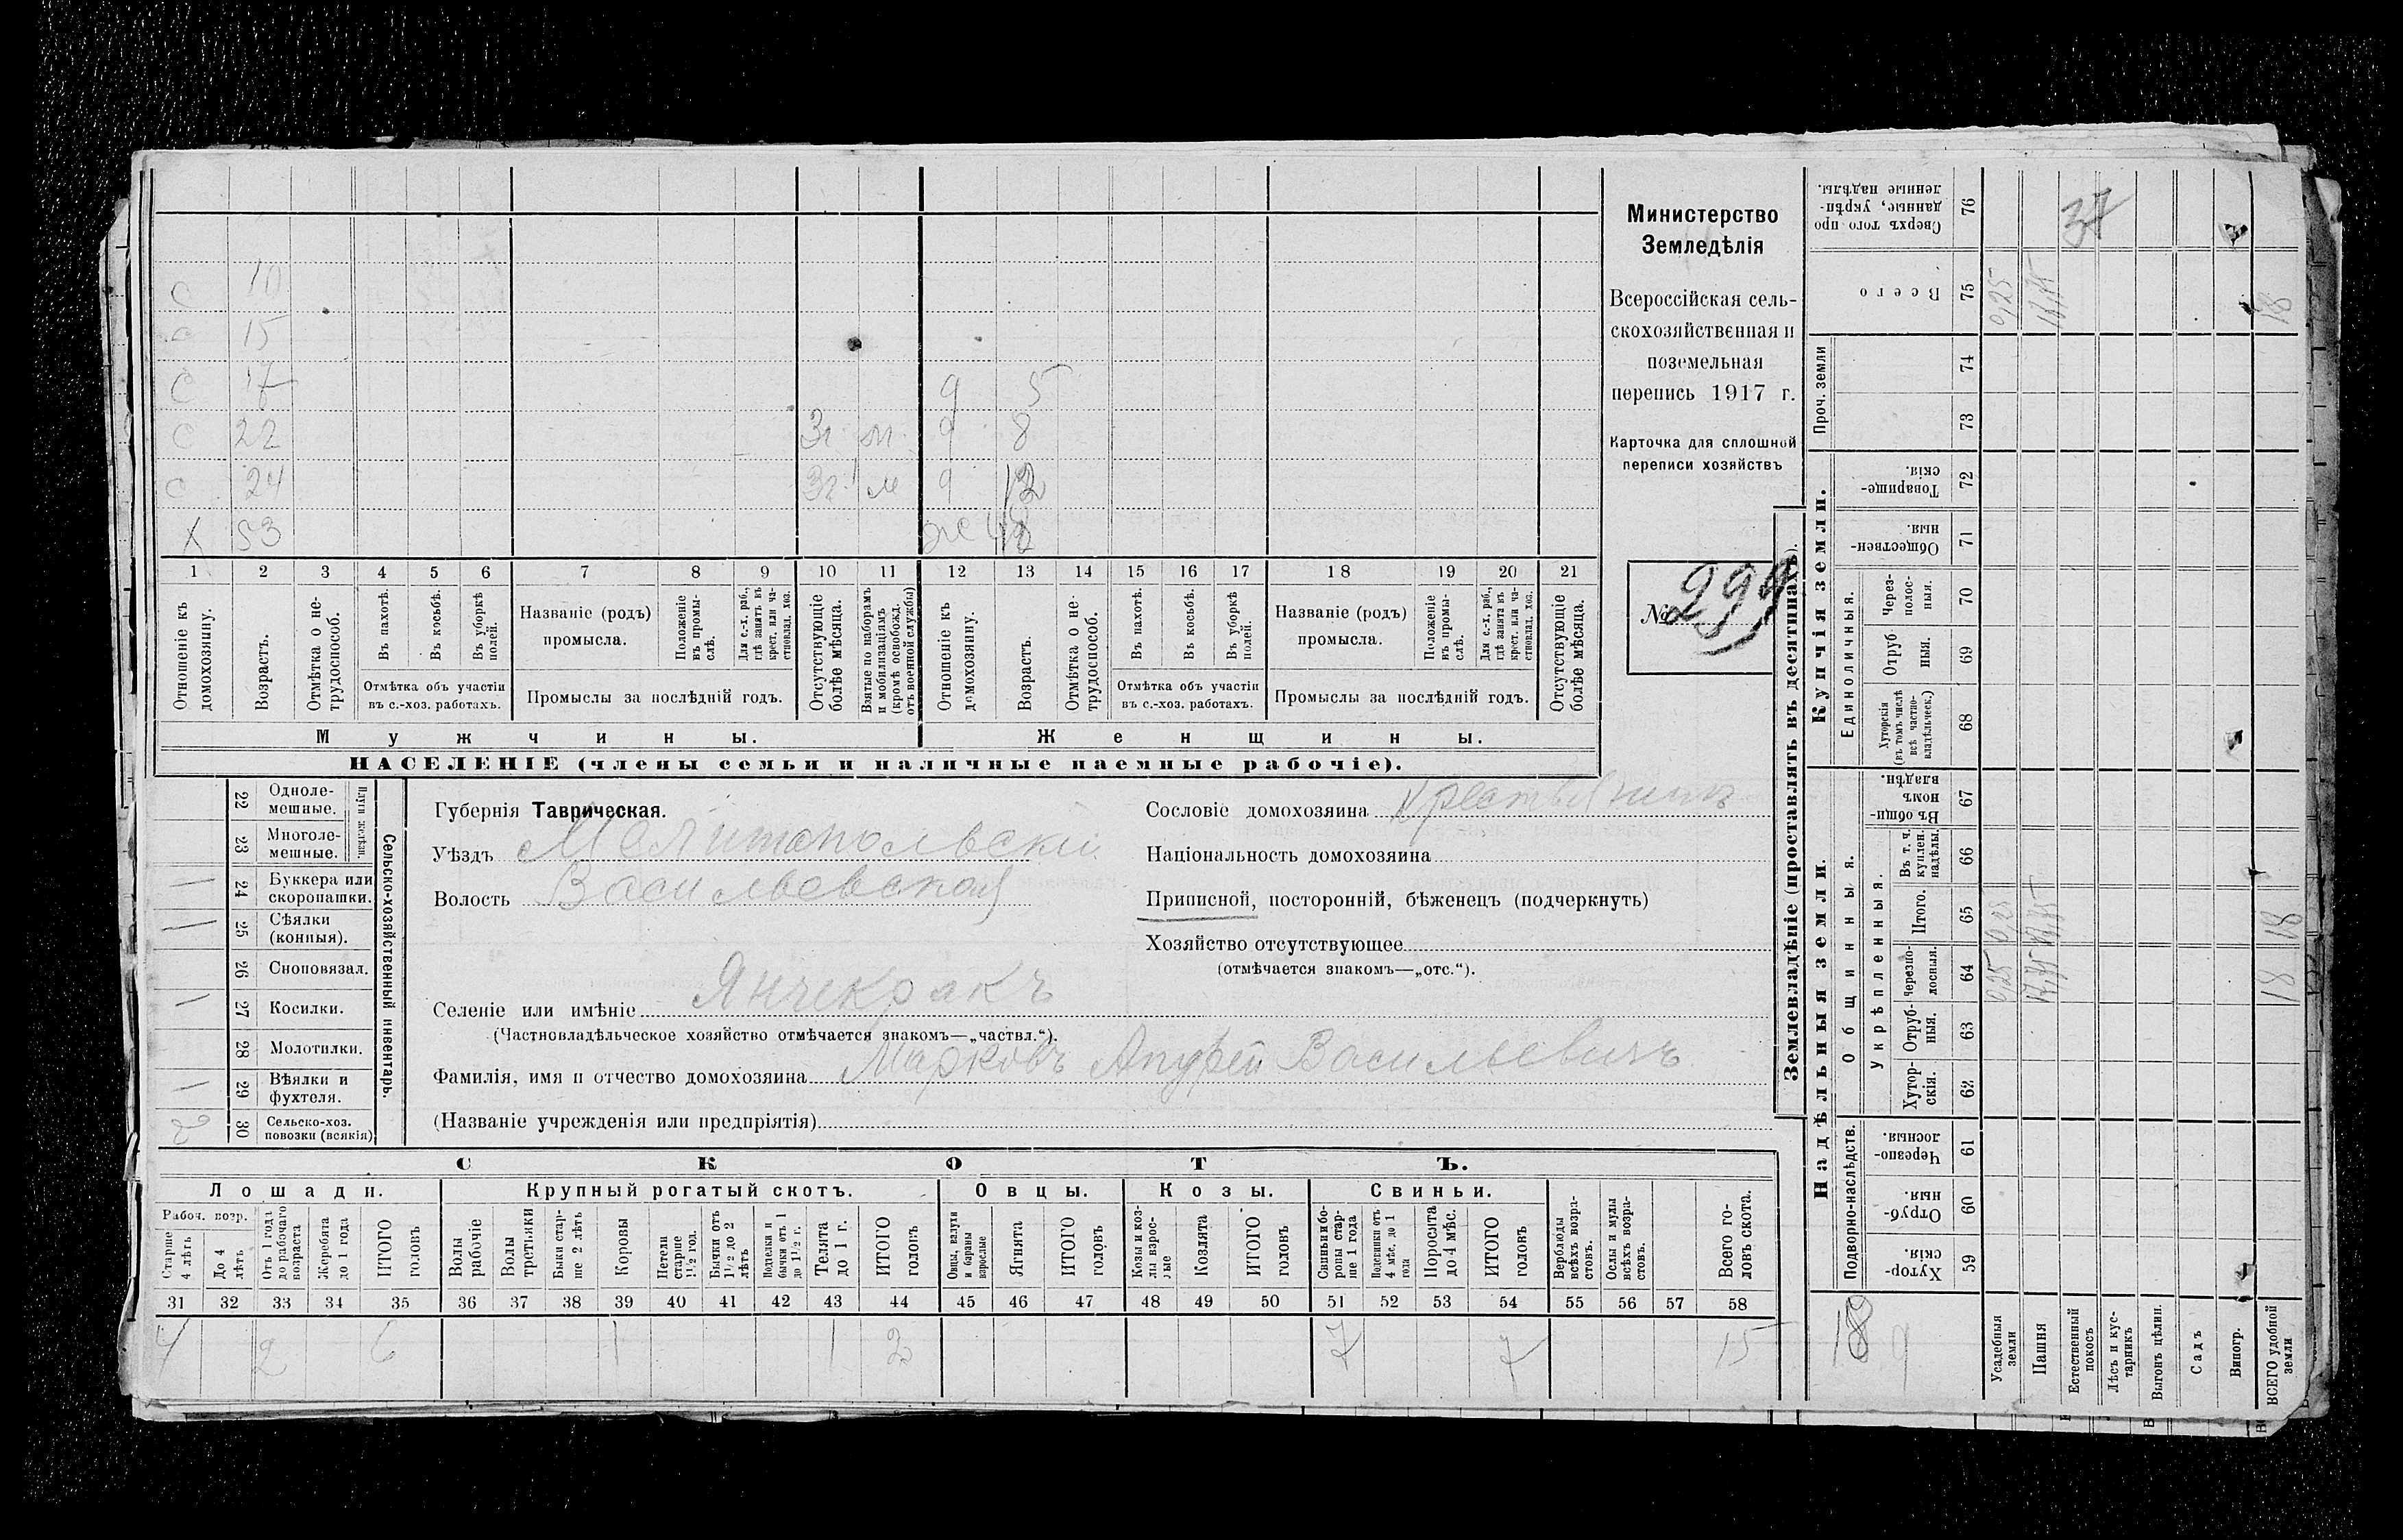 С 10
С 15
С 17
9 5
С 22 3г м 9 8
С 24 3г м 9 12
Х 53 ж
1 2 3 4 5 6 7 8 9 10 11 12 13 14 15 16 17 18 19 20 21
Отношеніе къ домохозяину.
Возрастъ.
Отмѣтка о не-трудоспособ.
Въ пахотѣ.
Въ косьбѣ.
Въ уборкѣ полей.
Отмѣтка объ участіи
въ с.-хоз. работахъ.
Названіе (родъ)
промысла.
Положеніе въ промы-слѣ.
Для с.-х. раб., гдѣ занятъ въ крест. или ча-стновлад. хоз.
Промыслы за послѣдній годъ.
Отсутствующіе болѣе мѣсяца.
Взятые по наборамъ и мобилизаціямъ (кромѣ освобожд. отъ военной службы)
Отношеніе къ домохозяину.
Возрастъ.
Отмѣтка о не-трудоспособ.
Въ пахотѣ.
Въ косьбѣ.
Въ уборкѣ полей.
Отмѣтка объ участіи
въ с.-хоз. работахъ.
Названіе (родъ)
промысла.
Положеніе въ промы-слѣ.
Для с.-х. раб., гдѣ занята въ крест. или ча-стновлад. хоз.
Промыслы за послѣдній годъ.
Отсутствующіе болѣе мѣсяца.
Мужчины.
Женщины.
НАСЕЛЕНІЕ (члены семьи и наличные наемные рабочіе).
Министерство
Земледѣлія
Всероссійская сель-
скохозяйственная и
поземельная
перепись 1917 г.
Карточка для сплошной
переписи хозяйствъ
№ 299
Сельско-хозяйственный инвентарь.
Плуги желѣзн.
22 Одноле-
мешные.
23 Многоле-
мешные.
1 24 Буккера или
скоропашки.
1 25 Сѣялки
(конныя).
26 Сноповязал.
1 27 Косилки.
28 Молотилки.
1 29 Вѣялки и
фухтеля.
2 30 Сельско-хоз.
повозки (всякія)
Губернія Таврическая.
Уѣздъ Мелитопольски
Волость Васильевская
Сословіе домохозяина Крестьянинъ
Національность домохозяина
Приписной, посторонній, бѣженецъ (подчеркнуть)
Хозяйство отсутствующее
(отмѣчается знакомъ—„отс.“).
Селеніе или имѣніе Янчекракъ
(Частновладѣльческое хозяйство отмѣчается знакомъ—„частвл.“).
Фамилія, имя и отчество домохозяина Марковъ Ануфрій Васильевичъ
(Названіе учрежденія или предпріятія)
СКОТЪ.
Лошади.
Крупный рогатый скотъ.
Овцы.
Козы.
Свиньи.
Рабоч. возр.
Старше 4 лѣтъ
До 4 лѣтъ
Отъ 1 года до рабочаго возраста
Жеребята до 1 года
ИТОГО головъ
Волы рабочіе
Волы третьяки
Быки стар-ше 2 лѣтъ
Коровы
Нетели старше 1 1/2 год.
Бычки отъ 1 1/2 до 2 лѣтъ
Подтелки и бычки отъ 1 до 1 1/2 г.
Телята до 1 г.
ИТОГО головъ
Овцы, валухи и бараны взрослые
Ягнята
ИТОГО головъ
Козы и коз-лы взрос-лые
Козлята
ИТОГО головъ
Свиньи и бо-ровы стар-ше 1 года
Подсвинки отъ 4 мѣс. до 1 года
Поросята до 4 мѣс.
ИТОГО головъ
Верблюды всѣхъ возра-стовъ.
Ослы и мулы всѣхъ возра-стовъ.
Всего го-ловъ скота.
31 32 33 34 35 36 37 38 39 40 41 42 43 44 45 46 47 48 49 50 51 52 53 54 55 56 57 58
4 2 6 1 1 2 7 7 15
Землевладѣніе (проставлять въ десятинахъ).
Надѣльныя земли.
Купчія земли.
Проч. земли
Подворно-наслѣдств.
Общинныя.
Укрѣпленныя.
Единоличныя.
Сверхъ того про-данные, укрѣп-ленные надѣлы. 76 37
Всего 75 0,25 17,75 18
74
73
Товарище-скія. 72
Обществен-ныя. 71
Через-полос-ныя. 70
Отруб-ныя. 69
Хуторскія (въ томъ числѣ всѣ частно-владѣльческ.) 68
Въ общин-номъ владѣн. 67
Въ т. ч. куплен. надѣлы. 66
Итого. 65 0,25 17,75 18
Черезпо-лосныя. 64 0,25 17,75 18
Отруб-ныя. 63
Хутор-скія. 62
Черезпо-лосныя. 61
Отруб-ныя. 60
Хутор-скія. 59
18 9
Усадебныя земли
Пашня
Естественный покосъ
Лѣсъ и кус-тарникъ
Выгонъ цѣлин.
Садъ
Виногр.
ВСЕГО удобной земли